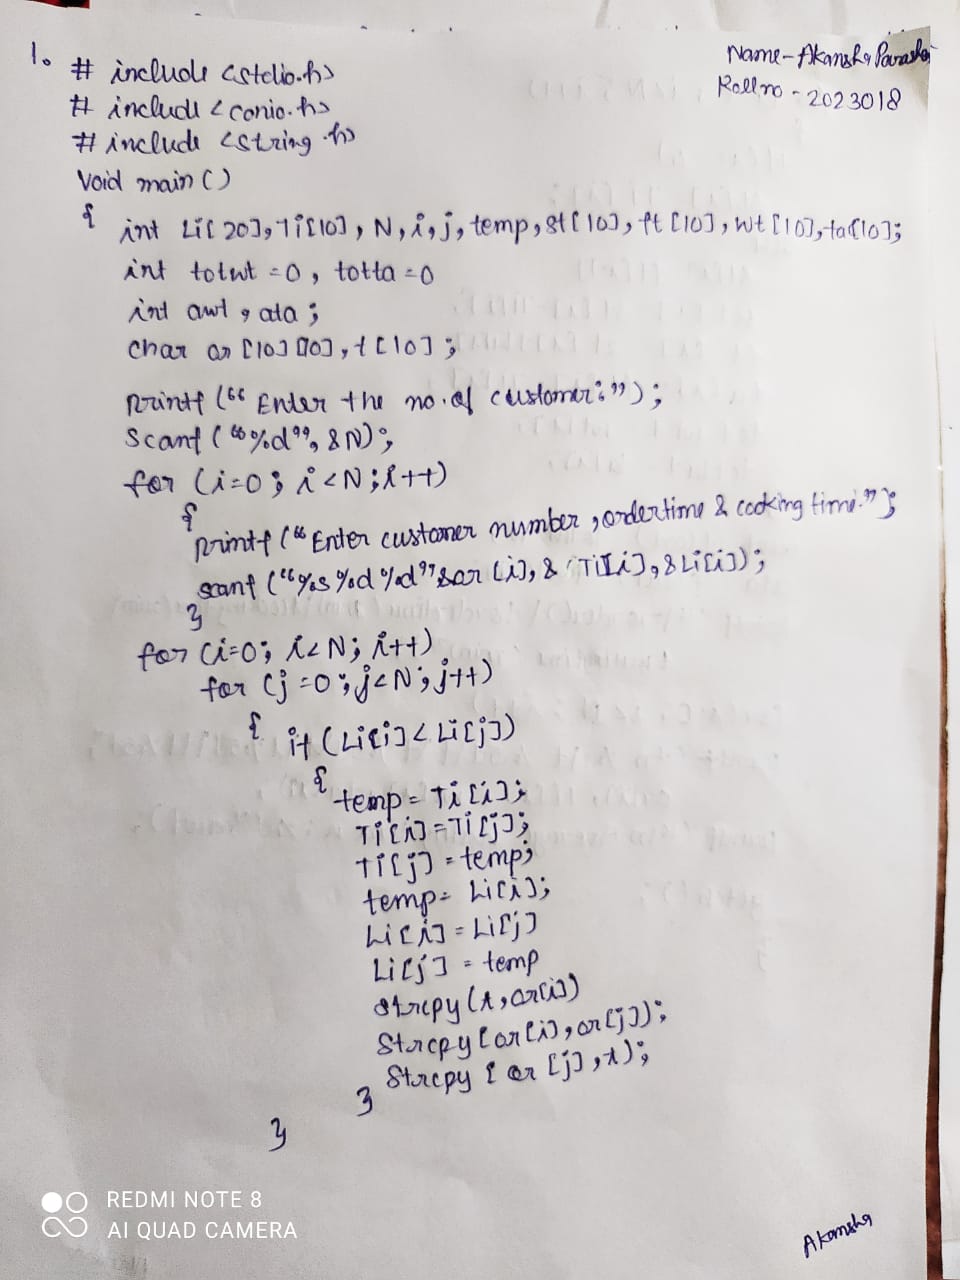 1.
# include <stdio.h>
Name - Akansha Parashar
Roll no - 2023018
# include <conio.h>
# include <string.h>
Void main ()
{
int Li[20], Ti[10], N, i, j, temp, st[10], ft[10], wt[10], ta[10];
int totwt = 0, totta = 0
int awt, ata;
char ar [10] [10], t [10];
printf (" Enter the no. of customer: ");
Scanf ("%d", &N);
for (i=0; i<N; i++)
{
printf (" Enter customer number, ordertime & cooking time. ");
scanf ("%s %d %d" &ar [i], & Ti[i], &Li[i]);
}
for (i=0; i<N; i++)
for (j=0; j<N; j++)
{ if (Li[i] < Li[j])
{
temp = Ti[i];
Ti[i] = Ti[j];
Ti[j] = temp;
temp = Li[i];
Li[i] = Li[j]
Li[j] = temp
strcpy (t, ar[i])
Strcpy [ar[i], ar[j]);
Strcpy [ ar [j], t);
}
}
REDMI NOTE 8
AI QUAD CAMERA
Akansha